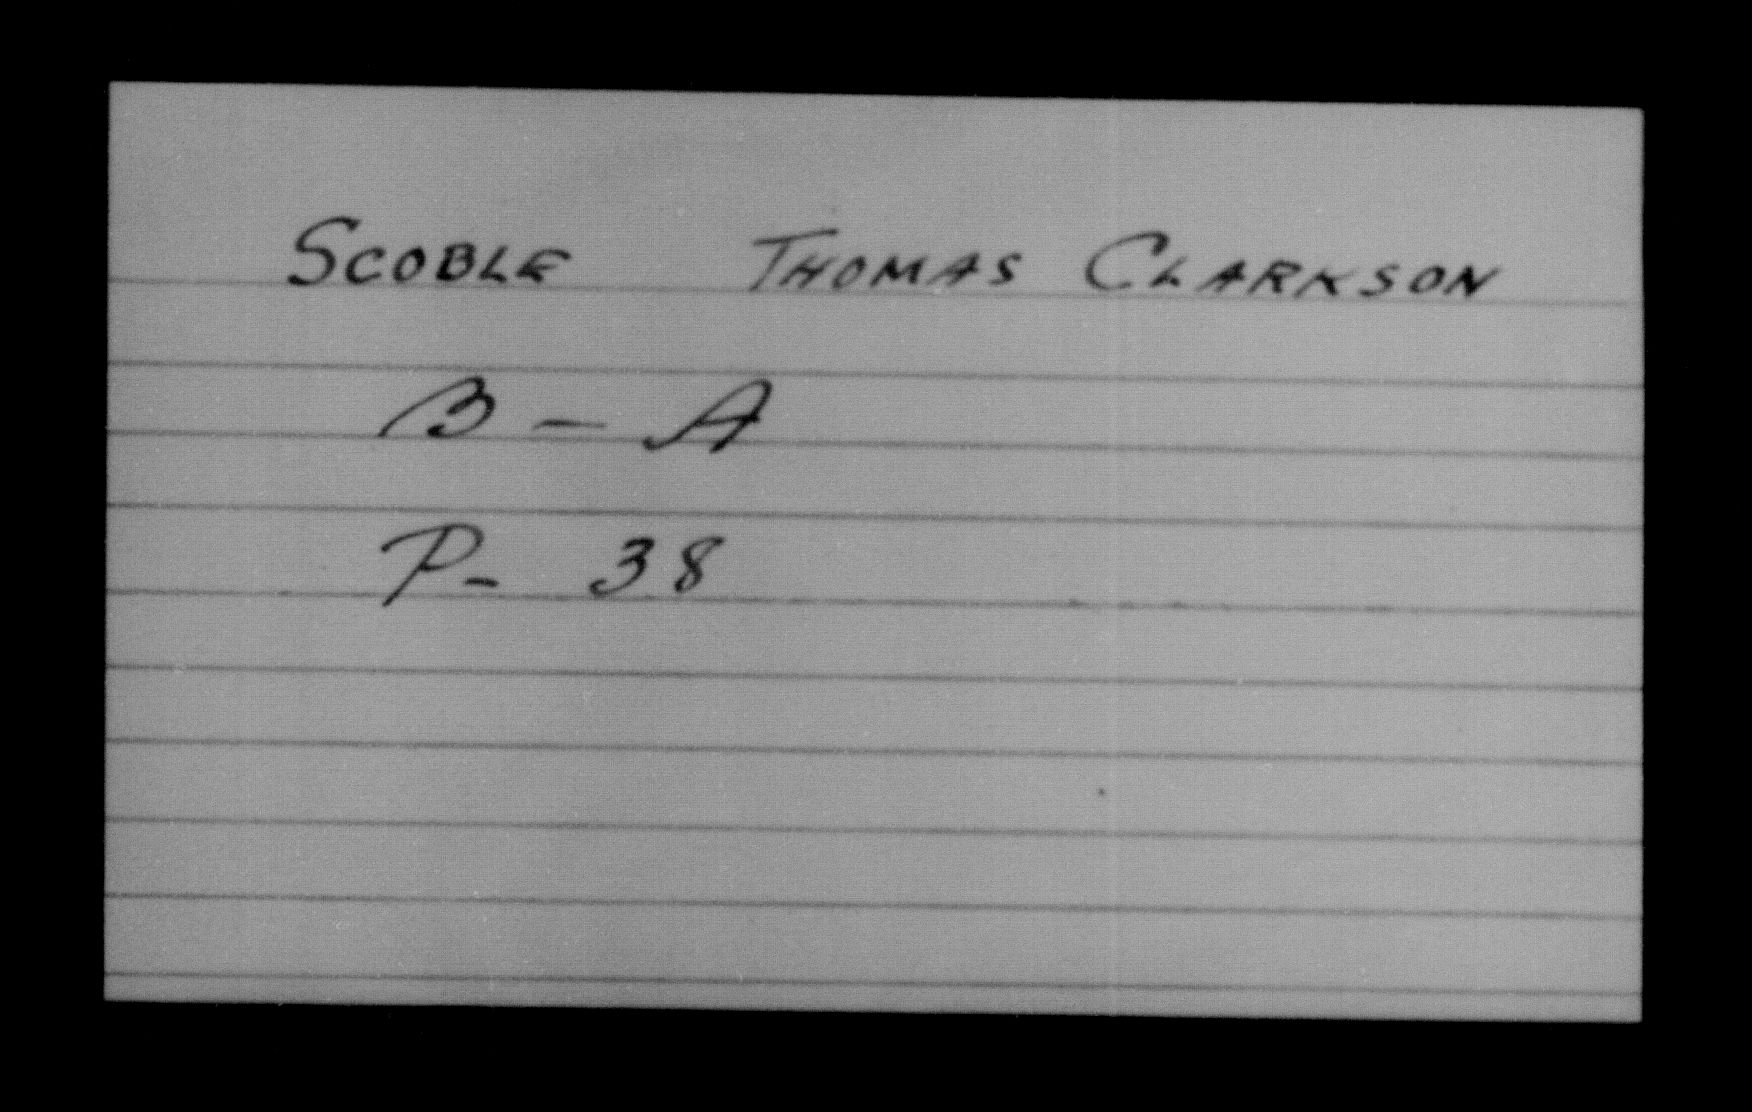 SCOBLE THOMAS CLARKSON
B - A
P- 38